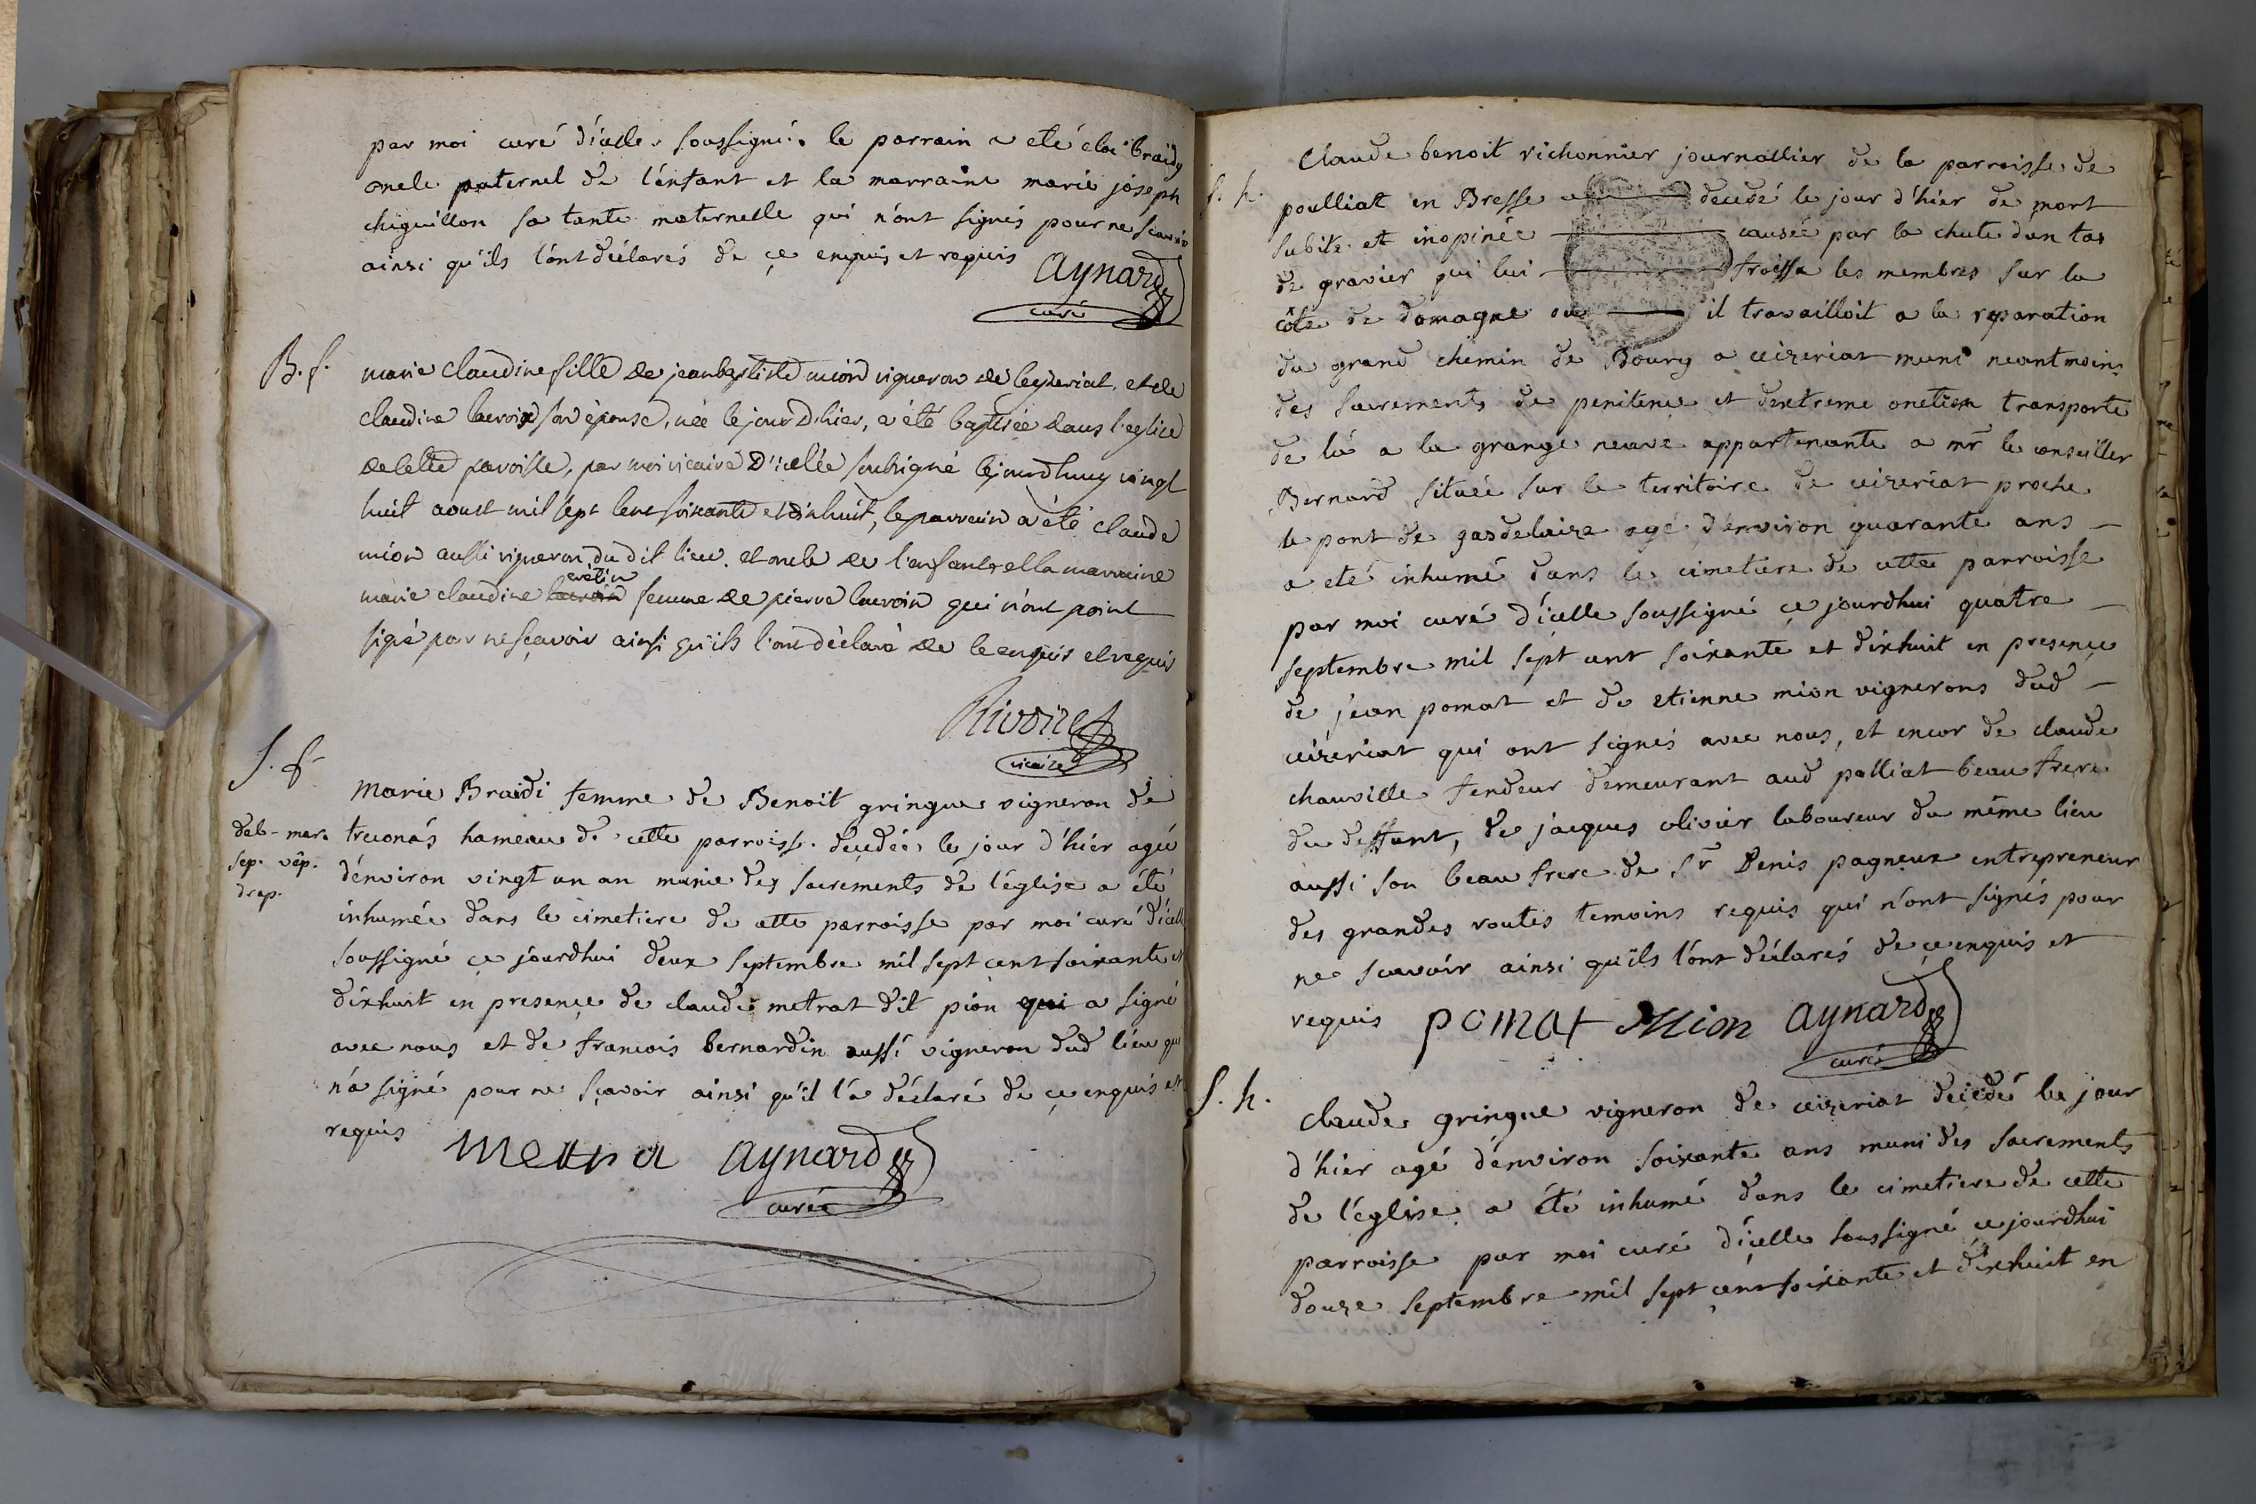 par moi curé d'icelle soussigné. le parrain a eté eloi braidy
oncle paternel de l'enfant et la marraine marie joseph
chiguillon sa tante maternelle qui n'ont signés pour ne scavoir
ainsi qu'ils l'ont déclarés de ce enquis et requis aynard
curé
B. f. marie claudine fille de jean baptiste mion vigneron de ceyzeriat, et de
claudine lacroix son épouse, née le jour d'hier, a été baptisée dans l'eglise
de cette paroisse, par moi vicaire d'icelle soussigné cejourdhuy vingt
huit aoust mil sept cent soixante et dixhuit, le parrain a été claude
mion aussi vigneron du dit lieu, et oncle de l'enfant et la marraine
marie claudine femme de pierre lacroix qui n'ont point
signé par ne sçavoir ainsi qu'ils l'ont déclaré de ce enquis et requis
Rivoire
vicaire
S. f.
marie Braidi femme de Benoit gringue vigneron de
deb - mar. treconás hameau de cette parroisse decedée le jour d'hier agée
sep. vêp. d'environ vingt un an munie des sacrements de l'église a été
drap. inhumée dans le cimetiere de cette parroisse par moi curé d'icelle
soussigné ce jourdhui deux septembre mil sept cent soixante et
dixhuit en presence de claude metrat dit pion qui a signé
avec nous et de francois bernardin aussi vigneron dud lieu qui
n'a signé pour ne sçavoir ainsi qu'il l'a déclaré de ce enquis et
requis metra aynard
curé
Claude benoit richonnier journallier de la parroisse de
S. h. poulliat en Bresse decedé le jour d'hier de mort
subite et inopinée causée par la chute d'un tas
de gravier qui lui froissa les membres sur la
côte de domagne ou il travailloit a la reparation
du grand chemin de Bourg a ceizeriat muni neantmoins
des sacrements de penitence et d'extreme onction transporté
de là a la grange neuve appartenante a mr le conseiller
Bernard située sur le territoire de ceizeriat proche
le pont de gasdelaize agé d'environ quarante ans
a eté inhumé dans le cimetiere de cette parroisse
par moi curé d'icelle soussigné ce jourdhui quatre
septembre mil sept cent soixante et dixhuit en presence
de jean pomat et de etienne mion vignerons dud
ceizeriat qui ont signés avec nous, et encor de claude
chauville fendeur demeurant aud palliat beau frere
du deffunt, de jacques olivier laboureur du même lieu
aussi son beau frere de Sr Denis pagneux entrepreneur
des grandes routes temoins requis qui n'ont signés pour
ne scavoir ainsi qu'ils l'ont déclarés de ce enquis et
requis pomat Mion aynard
curé
S. h. claude gringue vigneron de ceizeriat decedé le jour
d'hier agé d'environ soixante ans muni des sacrements
de l'église a été inhumé dans le cimetiere de cette
parroisse par moi curé d'icelle soussigné ce jourdhui
douze septembre mil sept cent soixante et dixhuit en